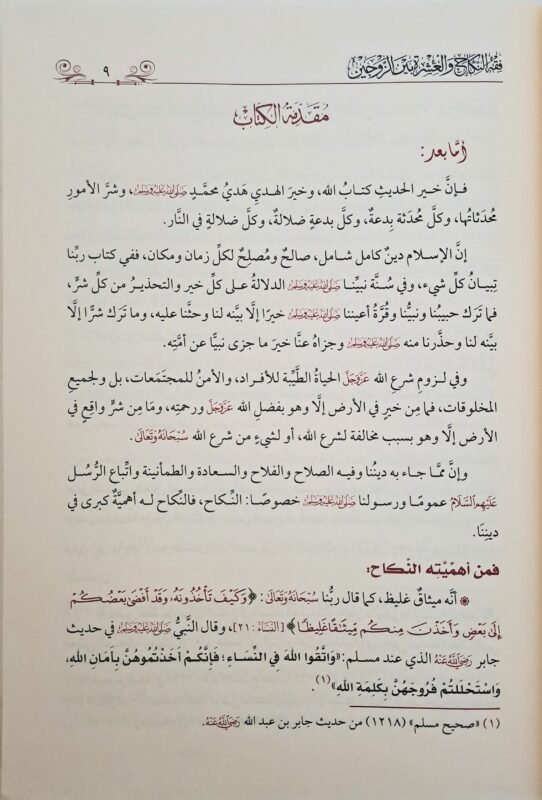 فقه النكاح والعشرة بين الزوجين
٩
مُقَدِّمَةُ الكِتَابِ
أمَّا بعد:
فإنَّ خير الحديثِ كتابُ الله، وخيرَ الهديِ هَديُ محمَّدٍ صَلَّى اللهُ عَلَيْهِ وَسَلَّمَ، وشرَّ الأمورِ
مُحدَثاتُها، وكلَّ مُحدَثة بِدعةٌ، وكلَّ بدعةٍ ضلالةٌ، وكلَّ ضلالةٍ في النَّار.
إنَّ الإسلام دينٌ كامل شامل، صالحٌ ومُصلِحٌ لكلِّ زمان ومكان، ففي كتاب ربِّنا
تِبيانُ كلِّ شيء، وفي سُنَّة نبيِّنا صَلَّى اللهُ عَلَيْهِ وَسَلَّمَ الدلالةُ على كلِّ خير والتحذيرُ من كلِّ شرٍّ،
فما تَرَك حبيبُنا ونبيُّنا وقُرَّةُ أعيننا صَلَّى اللهُ عَلَيْهِ وَسَلَّمَ خيرًا إلَّا بيَّنه لنا وحثَّنا عليه، وما تَرَك شرًّا إلَّا
بيَّنه لنا وحذَّرنا منه صَلَّى اللهُ عَلَيْهِ وَسَلَّمَ وجزاهُ عنَّا خيرَ ما جزى نبيًّا عن أمَّتِه.
وفي لـزومِ شرعِ الله عَزَّوَجَلَّ الحياةُ الطَّيِّبة للأفراد، والأمنُ للمجتمَعات، بل ولجميعِ
المخلوقات، فما مِن خيرٍ في الأرض إلَّا وهو بفضلِ الله عَزَّوَجَلَّ ورحمتِه، ومَا مِن شرٍّ واقِعٍ في
الأرض إلَّا وهو بسبب مخالفة لشرع الله، أو لشيءٍ من شرع الله سُبْحَانَهُ وَتَعَالَى.
وإنَّ ممَّا جاء به ديننُا وفيه الصلاح والفلاح والسعادة والطمأنينة واتِّباع الرُّسُل
عَلَيْهِم السَّلَامُ عمومًا ورسولنا صَلَّى اللهُ عَلَيْهِ وَسَلَّمَ خصوصًا: النِّكاح، فالنِّكاح لـه أهميَّةٌ كبرى في
ديننِا.
فمن أهمّيّته النّكاح:
* أنَّه ميثاقٌ غليظ، كما قال ربُّنا سُبْحَانَهُ وَتَعَالَى: ﴿وَكَيْفَ تَأْخُذُونَهُ وَقَدْ أَفْضَىٰ بَعْضُكُمْ
إِلَىٰ بَعْضٍ وَأَخَذْنَ مِنكُم مِّيثَاقًا غَلِيظًا﴾ [النساء: ٢١]، وقال النَّبيُّ صَلَّى اللهُ عَلَيْهِ وَسَلَّمَ في حديث
جابر رَضِيَ اللهُ عَنْهُ الذي عند مسلم: «وَاتَّقُوا اللهَ فِي النِّسَاءِ؛ فَإِنَّكُمْ أَخَذْتُمُوهُنَّ بِأَمَانِ اللهِ،
وَاسْتَحْلَلْتُمْ فُرُوجَهُنَّ بِكَلِمَةِ اللهِ»(١).
(١) «صحيح مسلم» (١٢١٨) من حديث جابر بن عبد الله رَضِيَ اللهُ عَنْهُ.